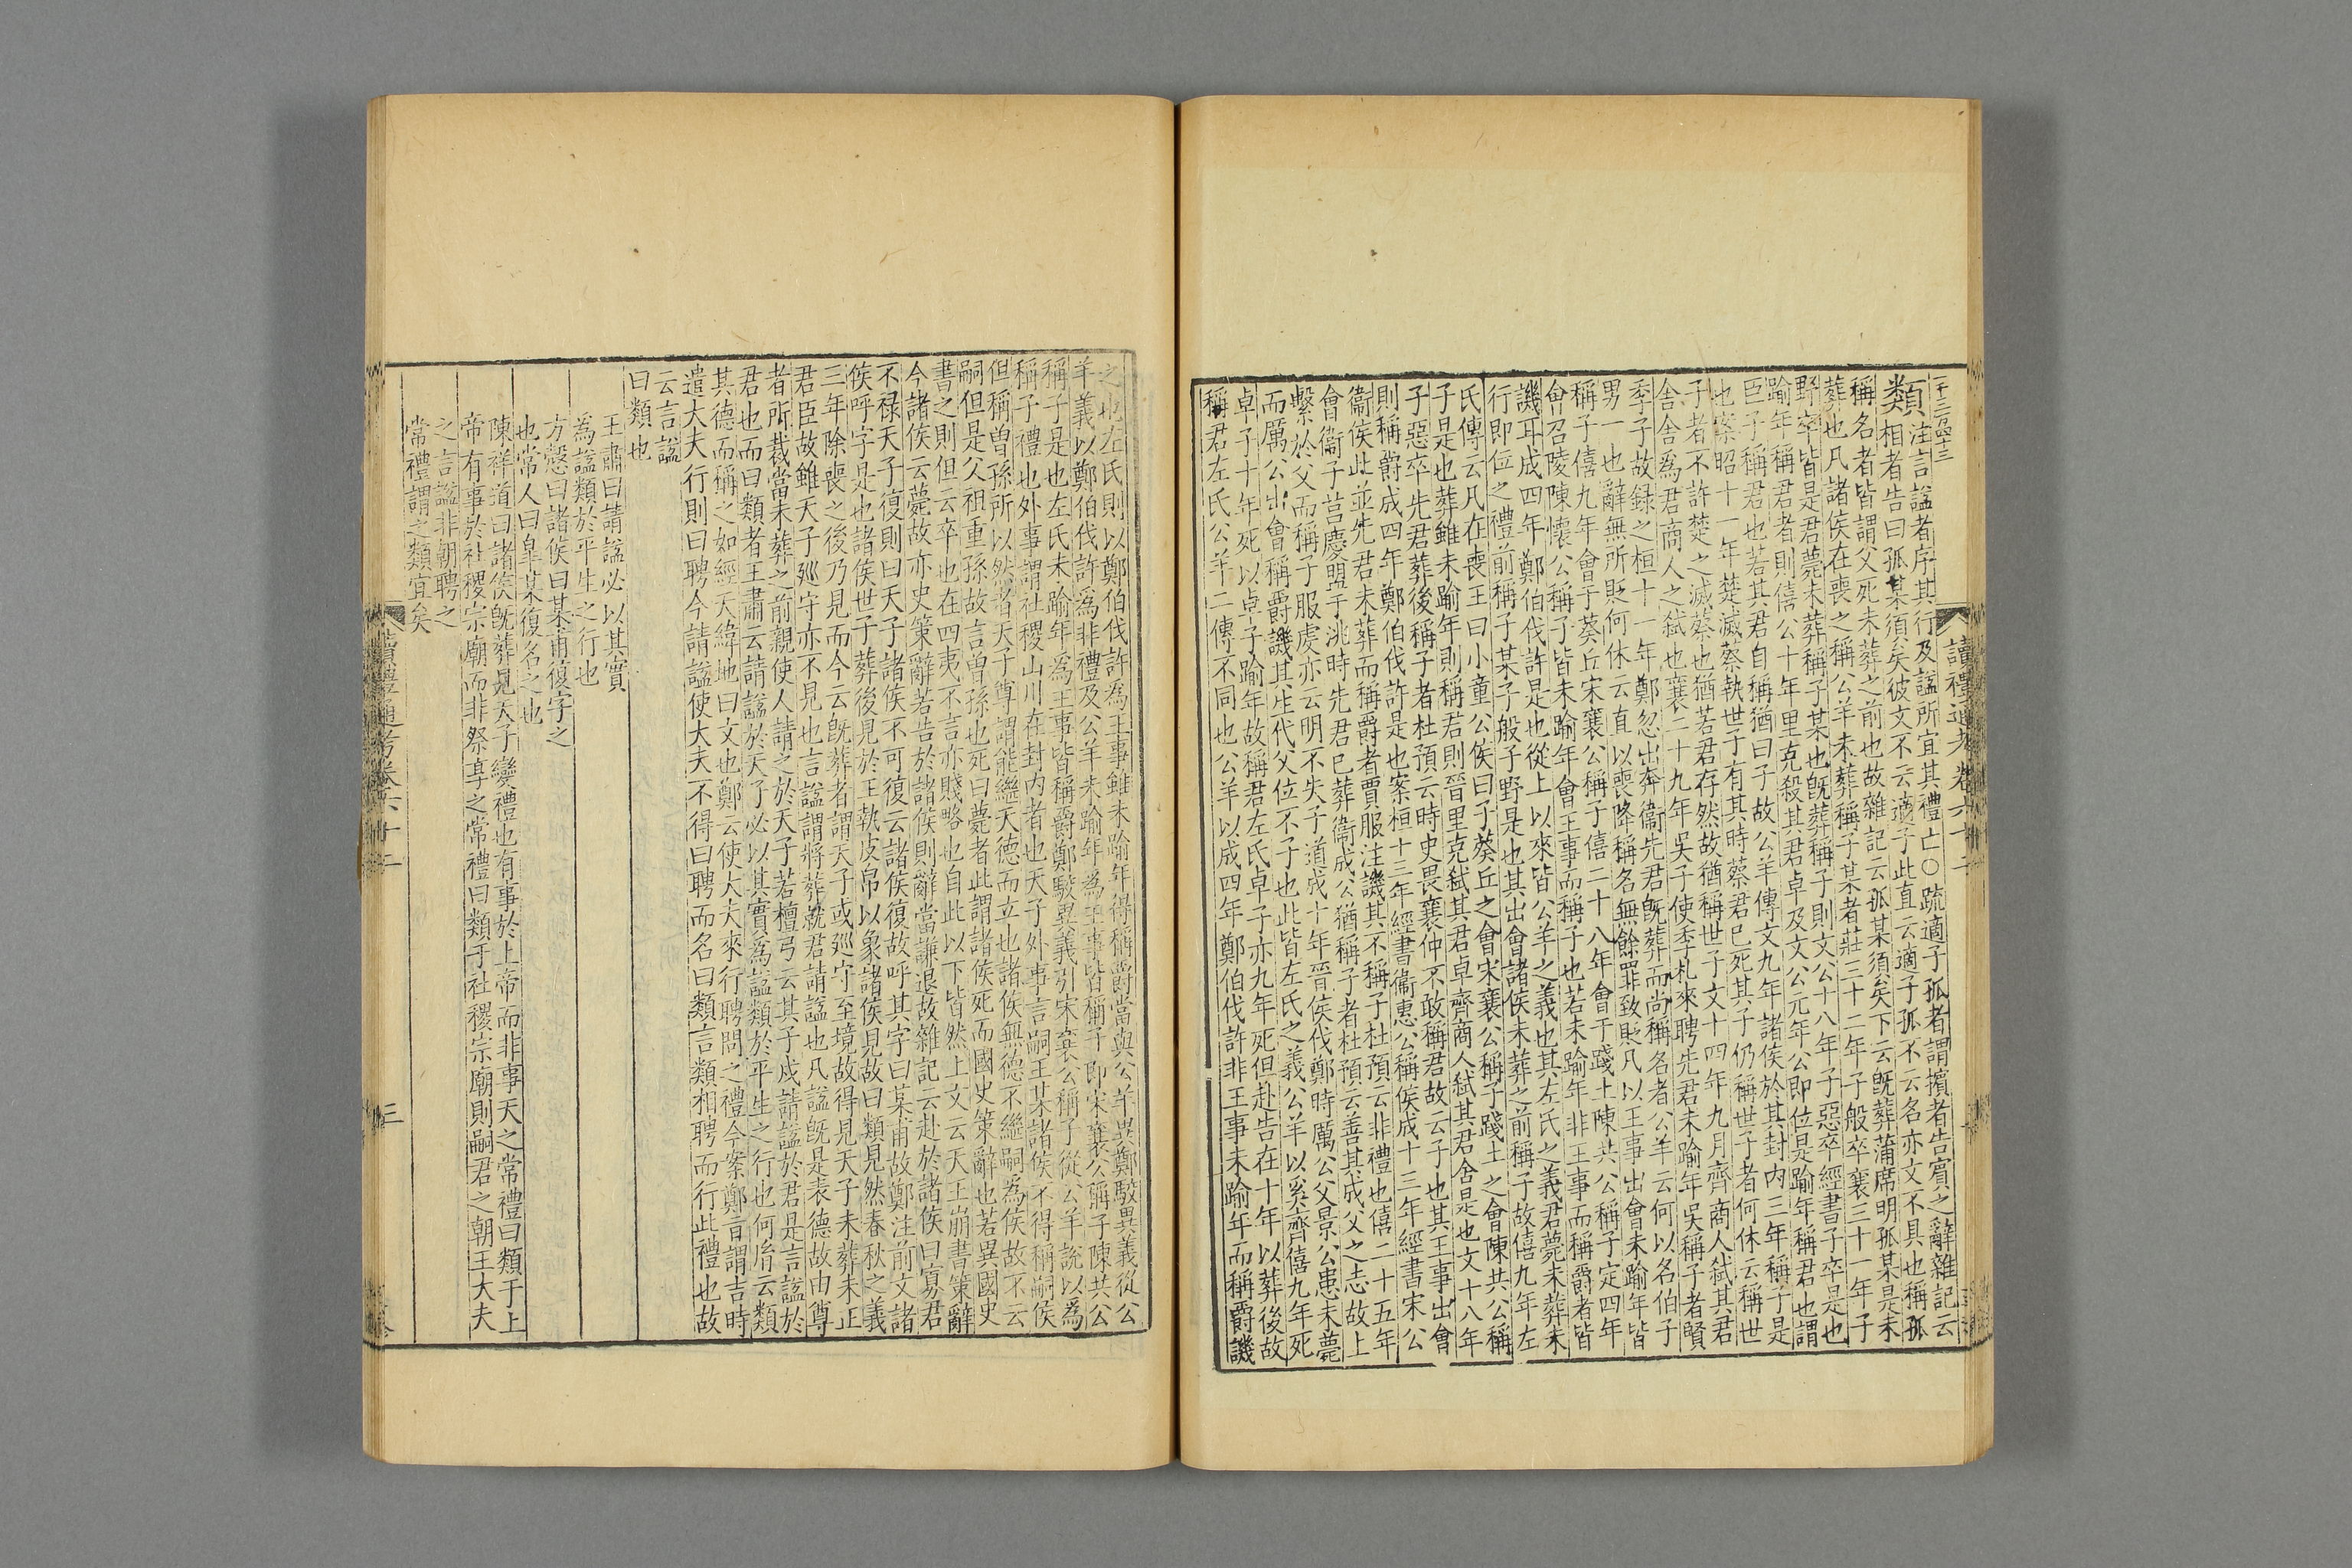 讀禮通考卷六十二
類注言諡者序其行及諡所宜其禮亡○疏適子孤者謂擯者告賓之辭雜記云
相者告曰孤某須矣彼文不云適子此直云適子孤不云名亦文不具也稱孤
稱名者皆謂父死未葬之前也故雜記云孤某須矣下云旣葬蒲席明孤某是未
葬也凡諸侯在喪之稱公羊未葬稱子某者莊三十二年子般卒襄三十一年子
野卒皆是君薨未葬稱子某也旣葬稱子則文公十八年子惡卒經書子卒是也
踰年稱君者則僖公十年里克殺其君卓及文公元年公即位是踰年稱君也謂
臣子稱君也若其君自稱猶曰子故公羊傳文九年諸侯於其封内三年稱子是
也案昭十一年楚滅蔡執世子有其時蔡君已死其子仍稱世子者何休云稱世
子者不許楚之滅蔡也猶若君存然故猶稱世子文十四年九月齊商人弑其君
舍舍爲君商人之弑也襄二十九年吳子使季札來聘先君未踰年吳稱子者賢
季子故録之桓十一年鄭忽出奔衞先君旣葬而尚稱名者公羊云何以名伯子
男一也辭無所貶何休云直以喪降稱名無餘罪致貶凡以王事出會未踰年皆
稱子僖九年會于葵丘宋襄公稱子僖二十八年會于踐土陳共公稱子定四年
會召陵陳懷公稱子皆未踰年會王事而稱子也若未踰年非王事而稱爵者皆
譏耳成四年鄭伯伐許是也從上以來皆公羊之義也其左氏之義君薨未葬未
行即位之禮前稱子某子般子野是也其出會諸侯未葬之前稱子故僖九年左
氏傳云凡在喪王曰小童公侯曰子葵丘之會宋襄公稱子踐土之會陳共公稱
子是也葬雖未踰年則稱君則晉里克弑其君卓齊商人弑其君舍是也文十八年
子惡卒先君葬後稱子者杜預云時史畏襄仲不敢稱君故云子也其王事出會
則稱爵成四年鄭伯伐許是也案桓十三年經書衞惠公稱侯成十三年經書宋公
衞侯此並先君未葬而稱爵者賈服注譏其不稱子杜預云非禮也僖二十五年
會衞子莒慶盟于洮時先君已葬衞成公猶稱子者杜預云善其成父之志故上
繫於父而稱子服虔亦云明不失子道成十年晉侯伐鄭時厲公父景公患未薨
而厲公出會稱爵譏其生代父位不子也此皆左氏之義公羊以奚齊僖九年死
卓子十年死以卓子踰年故稱君左氏卓子亦九年死但赴告在十年以葬後故
稱君左氏公羊二傳不同也公羊以成四年鄭伯伐許非王事未踰年而稱爵譏
之也左氏則以鄭伯伐許為王事雖未踰年得稱爵當與公羊異鄭駮異義從公
羊義以鄭伯伐許為非禮及公羊未踰年為王事皆稱子即宋襄公稱子陳共公
稱子是也左氏未踰年為王事皆稱爵鄭駮異義引宋襄公稱子從公羊說以為
稱子禮也外事謂社稷山川在封内者也天子外事言嗣王某諸侯不得稱嗣侯
但稱曽孫所以然者天子尊謂能繼天德而立也諸侯無德不繼嗣為侯故不云
嗣但是父祖重孫故言曽孫也死曰薨者此謂諸侯死而國史策辭也若異國史
書之則但云卒也在四夷不言亦賤略也自此以下皆然上文云天王崩書策辭
今諸侯云薨故亦史策辭若告於諸侯則辭當謙退故雜記云赴於諸侯曰寡君
不禄天子復則曰天子諸侯不可復云諸侯復故呼其字曰某甫故鄭注前文諸
侯呼字是也諸侯世子葬後見於王執皮帛以象諸侯見故曰類見然春秋之義
三年除喪之後乃見而今云旣葬者謂天子或廵守至境故得見天子未葬未正
君臣故雖天子廵守亦不見也言諡謂將葬就君請諡也凡諡旣是表德故由尊
者所裁當未葬之前親使人請之於天子若檀弓云其子戍請諡於君是言諡於
君也而曰類者王肅云請諡於天子必以其實為諡類於平生之行也何胤云類
其德而稱之如經天緯地曰文也鄭云使大夫來行聘問之禮今案鄭言謂吉時
遣大夫行則曰聘今請諡使大夫不得曰聘而名曰類言類相聘而行此禮也故
云言諡
曰類也
王肅曰請諡必以其實
為諡類於平生之行也
方慤曰諸侯曰某甫復字之
也常人曰皐某復名之也
陳祥道曰諸侯旣葬見天子變禮也有事於上帝而非事天之常禮曰類于上
帝有事於社稷宗廟而非祭享之常禮曰類于社稷宗廟則嗣君之朝王大夫
之言諡非朝聘之
常禮謂之類宜矣
讀禮通考卷六十二
三